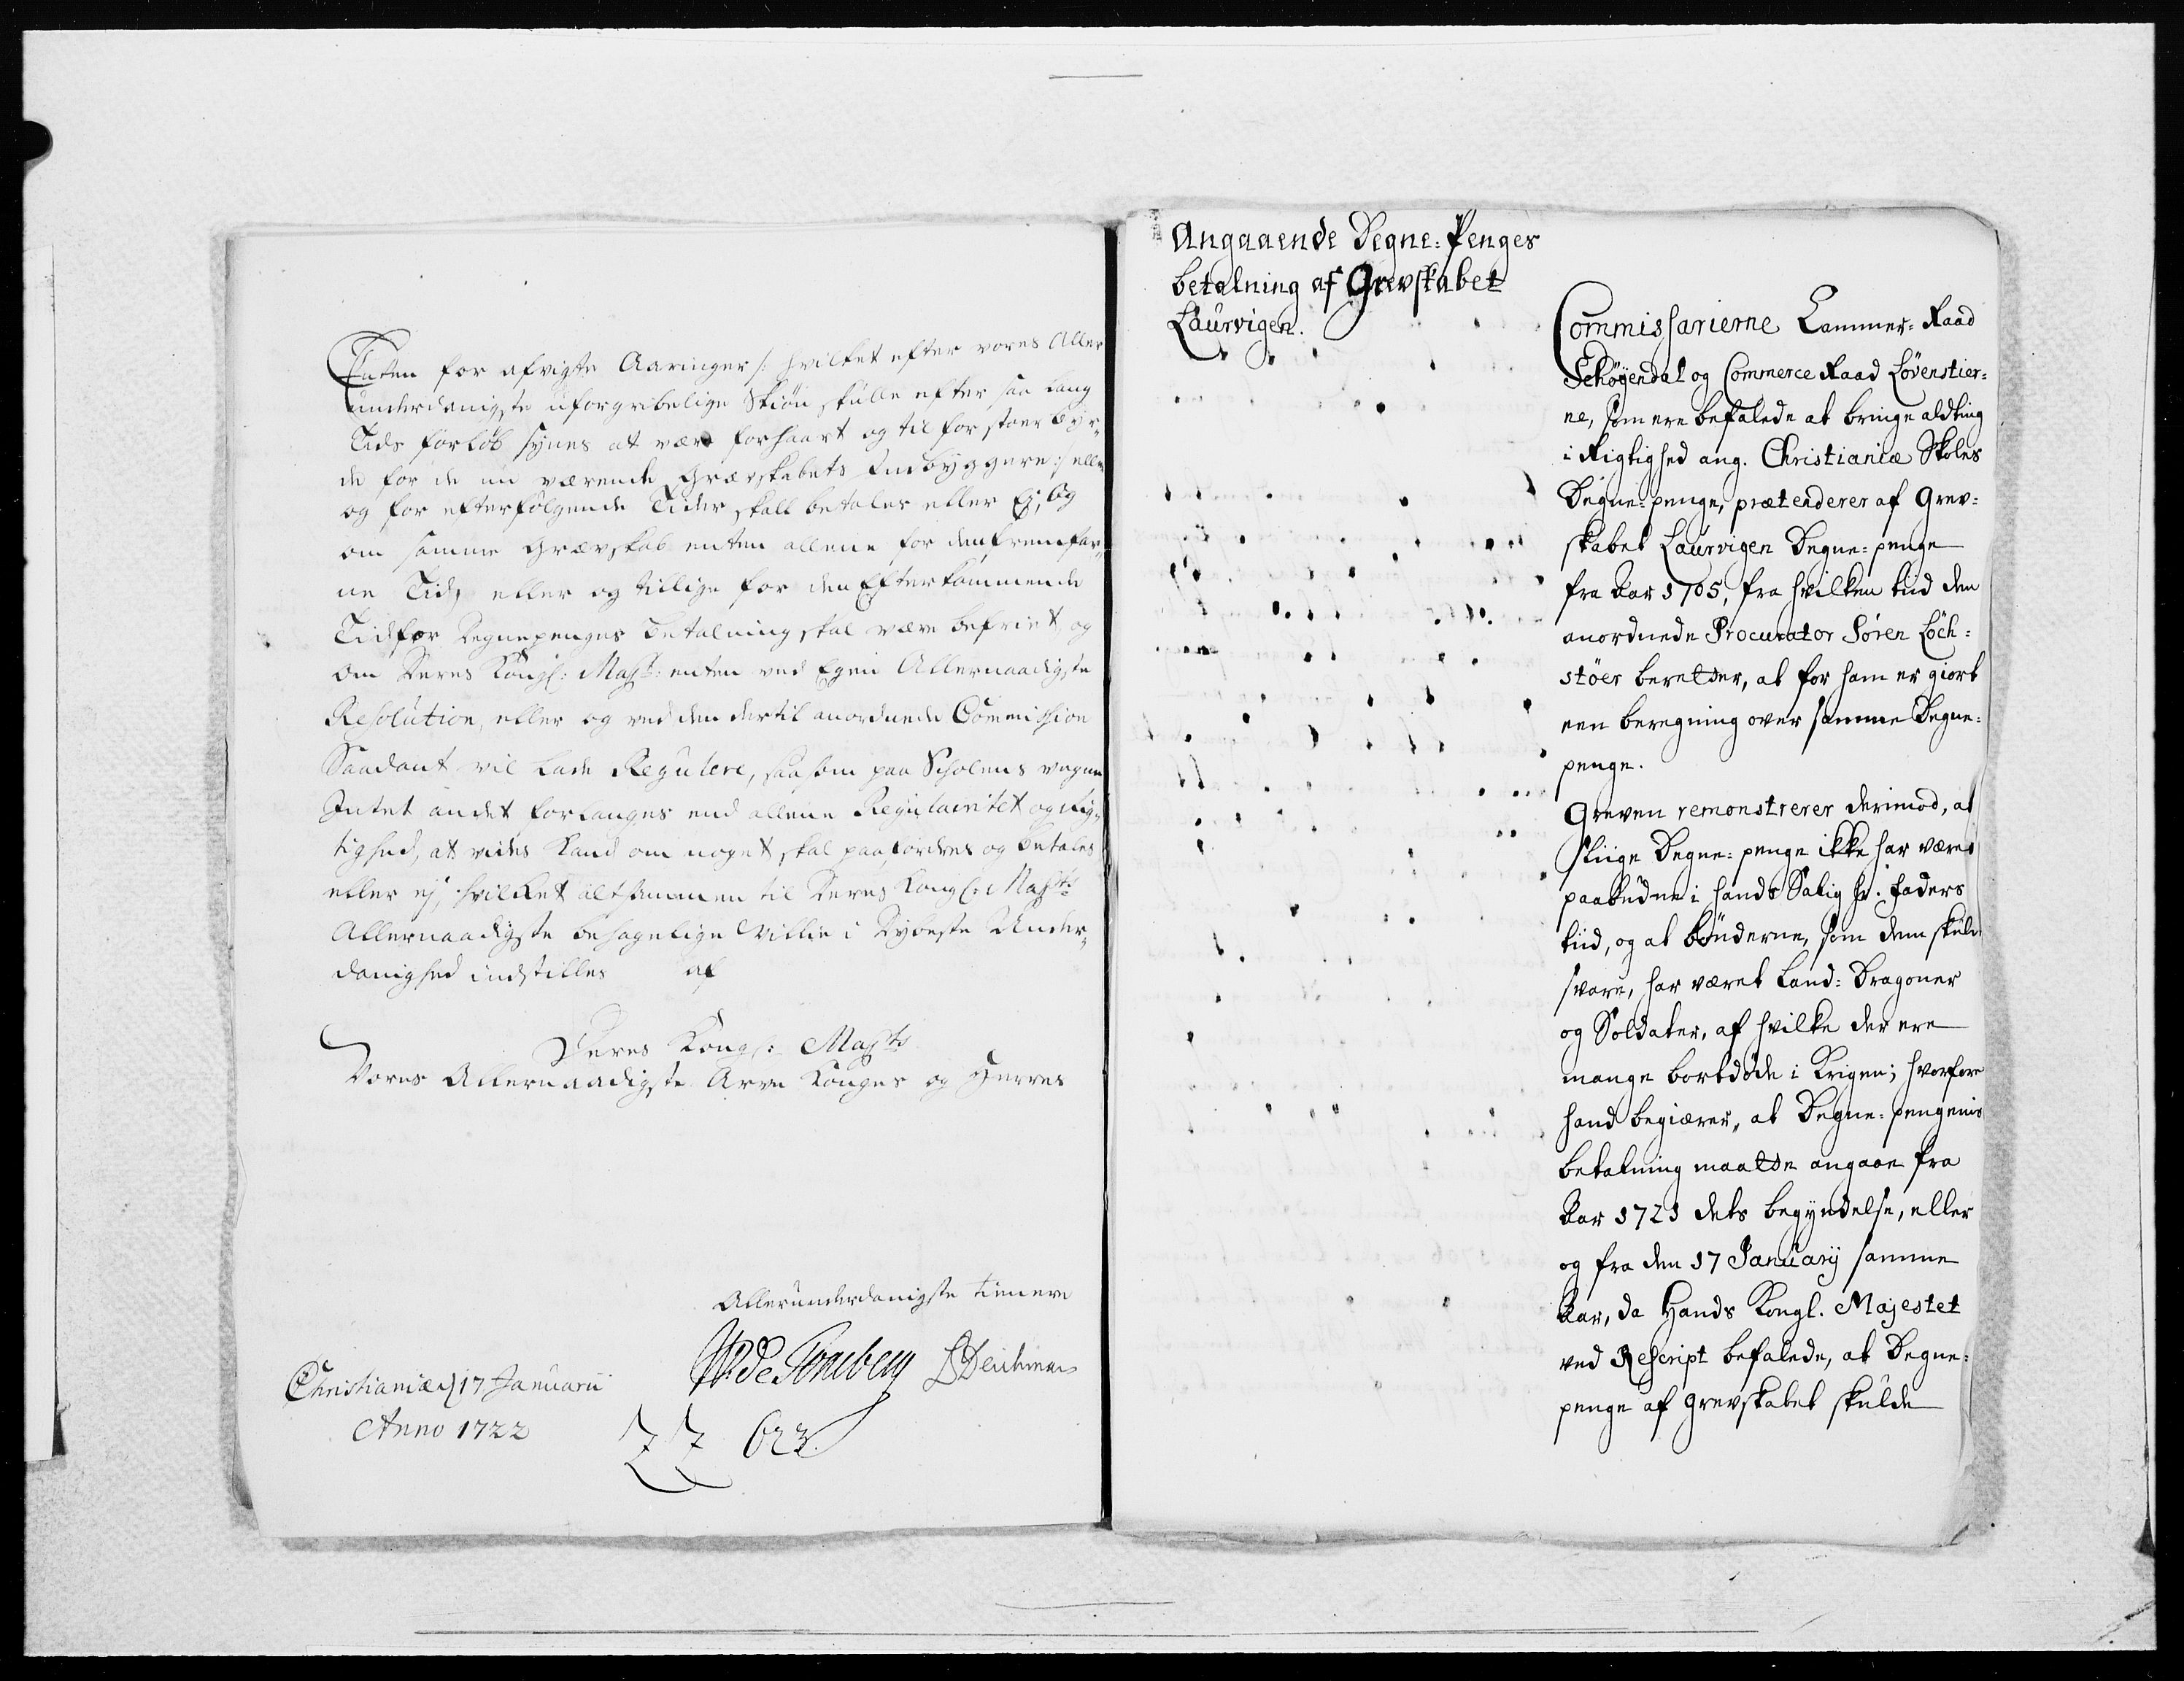 Enten for afvigte Aaringer /: hvilket efter vores Aller
underdanigste uforgribelige Skiøn skulle efter saa lang
Tids forløb synes at være forhaart og til for stoer byr¬
de for de nu værende Grævskabets Indbyggere :/ eller
og for efterfølgende Tider skall betales eller Ej, Og
om samme Grævskab enten allene for den fremfar¬
ne Tid, eller og tillige for den Efterkommende
Tid for Degnepenges betalning skal være befriet, og
om Deres Kongl: Majts: enten ved Egen Allernaadigste
Resolution, eller og ved den dertil anordnede Commission
Saadant vil lade Regulere, saasom paa Scholens vegne
Intet andet forlanges end allene Regularitet og Rig¬
tighed, at vides kand om noget skal paafordres og betales
eller ej, hvilket altsammen til Deres Kongl: Majts:
Allernaadigste behagelige Villie i Dybeste Under¬
danighed indstilles af
Deres Kongl: Majts
Vores Allernaadigste Arve Konges og Herres
Allerunderdanigste tienere
Christianiæ d 17 Januarii
Anno 1722
WdeTonsberg BDeichman
Angaaende Degne-Penges
betalning af Grevskabet
Laurvigen.
Commissarierne Cammer-Raad
Schøyendal og Commerce Raad Løvenstier-
ne, som ere befalede at bringe aldting
i Rigtighed ang. Christianiæ Skoles
Degne-penge, prætenderer af Grev-
skabet Laurvigen Degne-penge
fra Aar 1705, fra hvilken tiid den
anordnede Procurator Søren Løch-
støer beretter, at for ham er giort
een beregning over samme Degne-
penge.
Greven remonstrerer derimod, at
sliige Degne-penge ikke har været
paabudne i hands Salig Hr. Faders
tiid, og at bønderne, som dem skulde
svare, har været Land-Dragoner
og Soldater, af hvilke der ere
mange bortdøde i Krigen; hvorfore
hand begiærer, at Degne-pengenis
betalning maatte angaae fra
Aar 1721 dets begyndelse, eller
og fra den 17 Januarij samme
Aar, da Hands Kongl. Majestet
ved Rescript befalede, at Degne-
penge af Grevskabet skulde